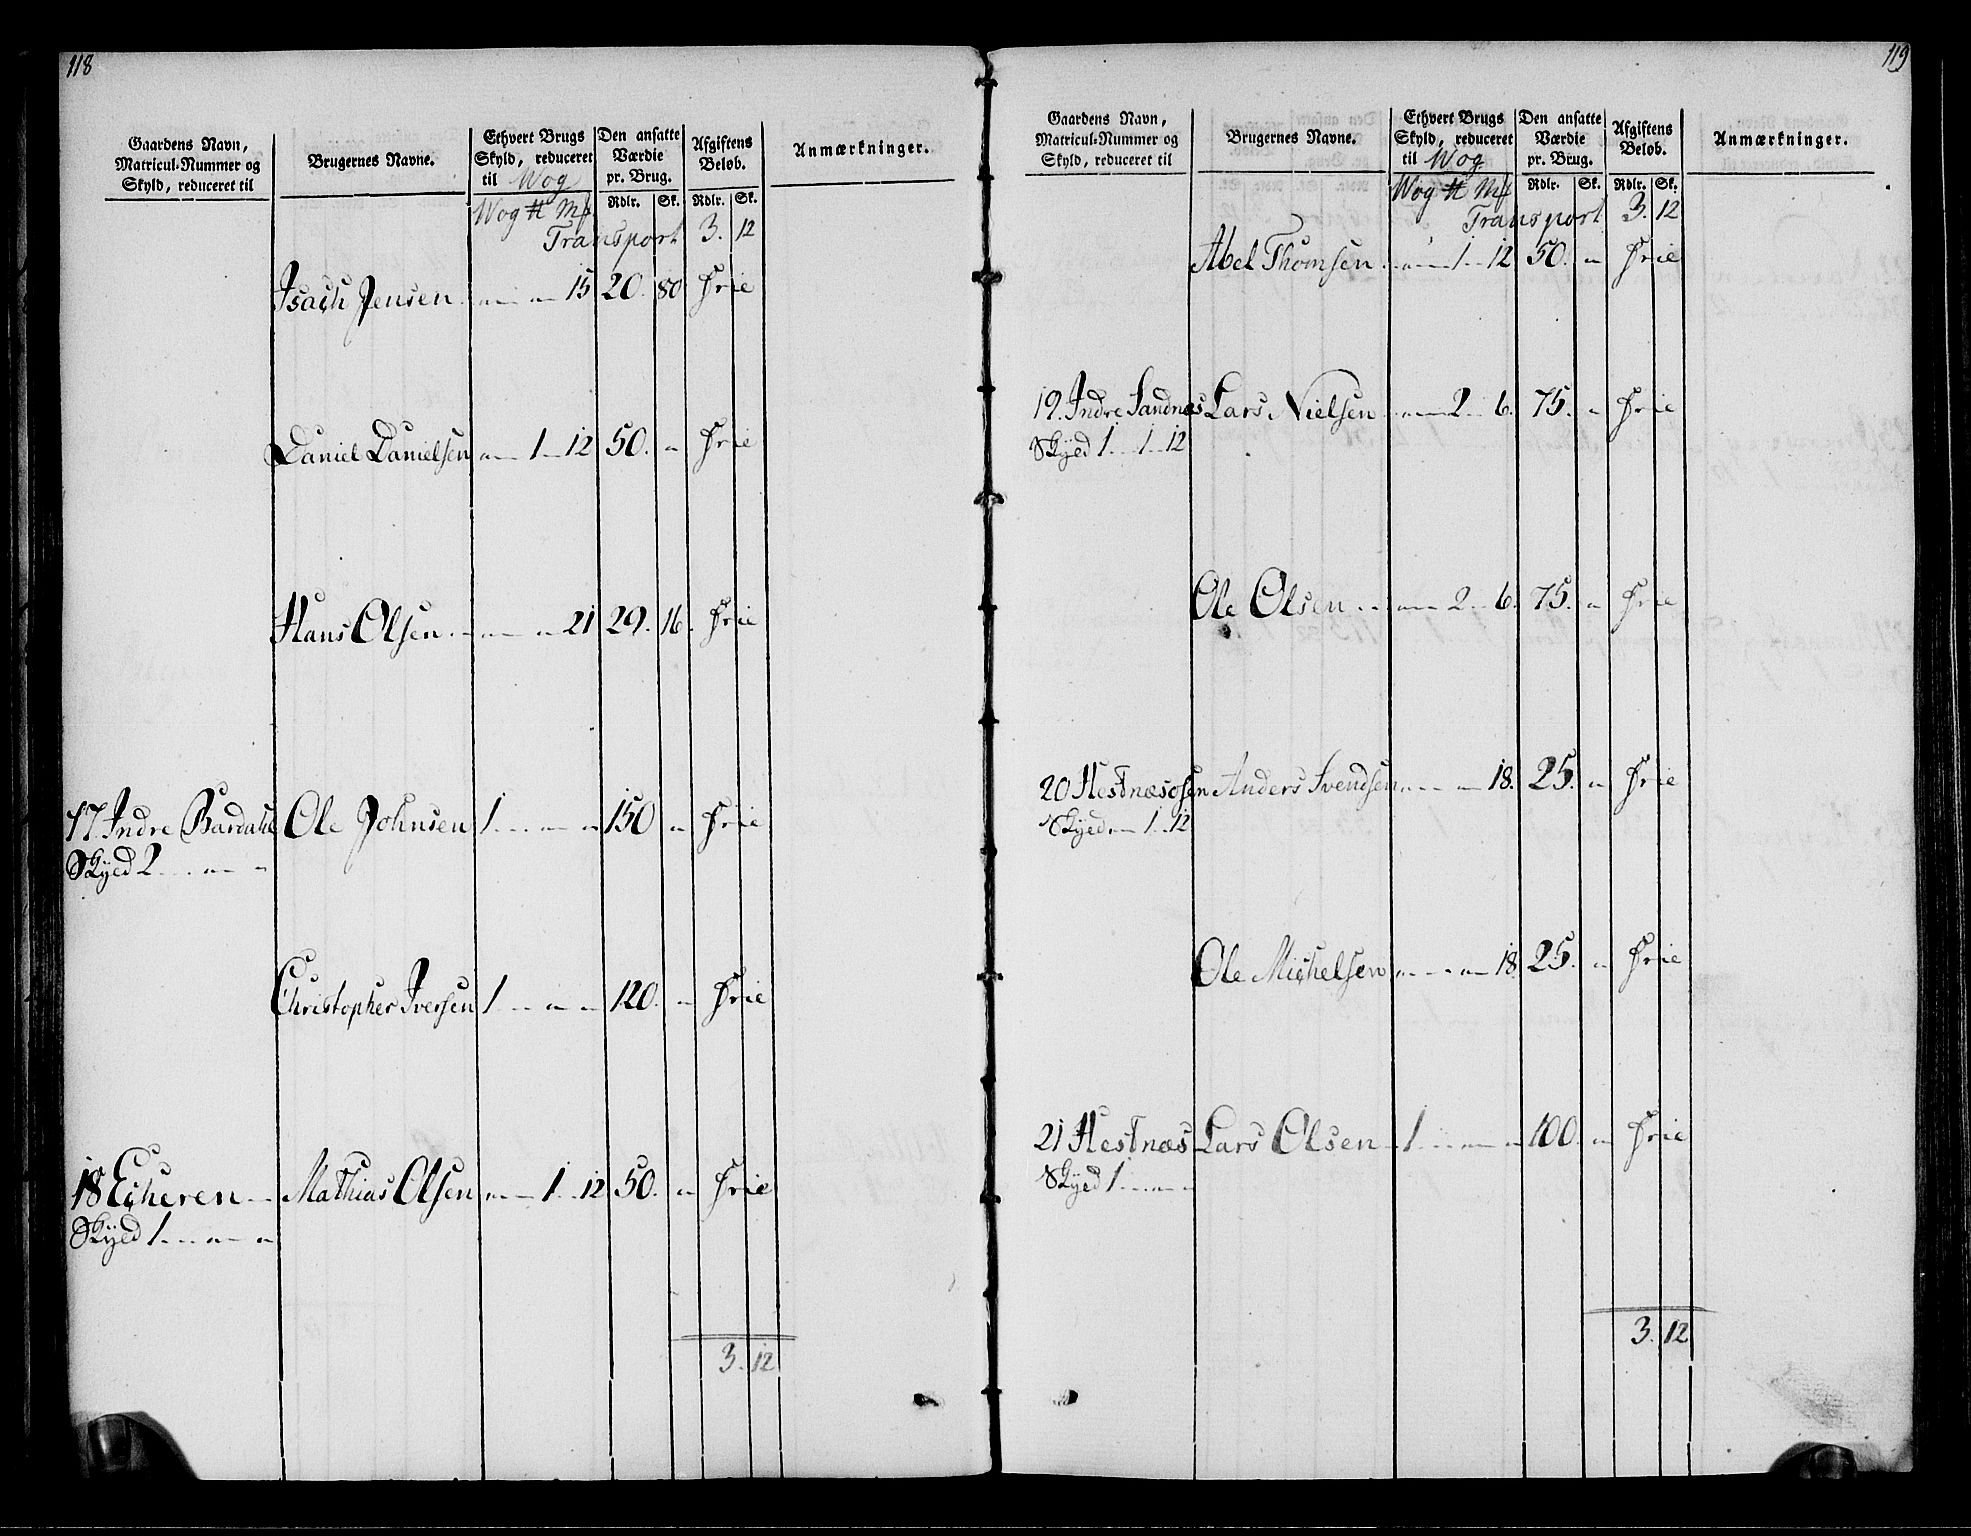 118
Gaardens Navn, Matricul-Nummer og Skyld, reduceret til
Brugernes Navne.
Ethvert Brugs Skyld, reduceret til Wog
Den ansatte Værdie pr. Brug.
Afgiftens Beløb.
Anmærkninger.
Wog ℔ Mk Rdlr. Sk. Rdlr. Sk.
Transport 3. 12
Isach Jensen 15 20. 80 Frie
Daniel Danielsen 1 12 50. Frie
Hans Olsen 21 29. 16. Frie
17. Indre Bardahl Ole Johnsen 1 150 Frie
Skyed 2
Christopher Iversen 1 120. Frie
18 Echeren Mathias Olsen 1 12 50. Frie
Skyed 1
3. 12
119
Gaardens Navn, Matricul-Nummer og Skyld, reduceret til
Brugernes Navne.
Ethvert Brugs Skyld, reduceret til Wog
Den ansatte Værdie pr. Brug.
Afgiftens Beløb.
Anmærkninger.
Wog ℔ Mk Rdlr. Sk. Rdlr. Sk.
Transport 3. 12
Abel Thomsen 1 12 50. Frie
19. Indre Sandnæs Lars Nielsen 2 6. 75. Frie
Skyed 1 1 12
Ole Olsen 2 6. 75. Frie
20 Hestnæsosen Anders Svendsen 18. 25. Frie
Skyed 1 12
Ole Michelsen 18. 25. Frie
21 Hestnæs Lars Olsen 1 100. Frie
Skyed 1
3. 12